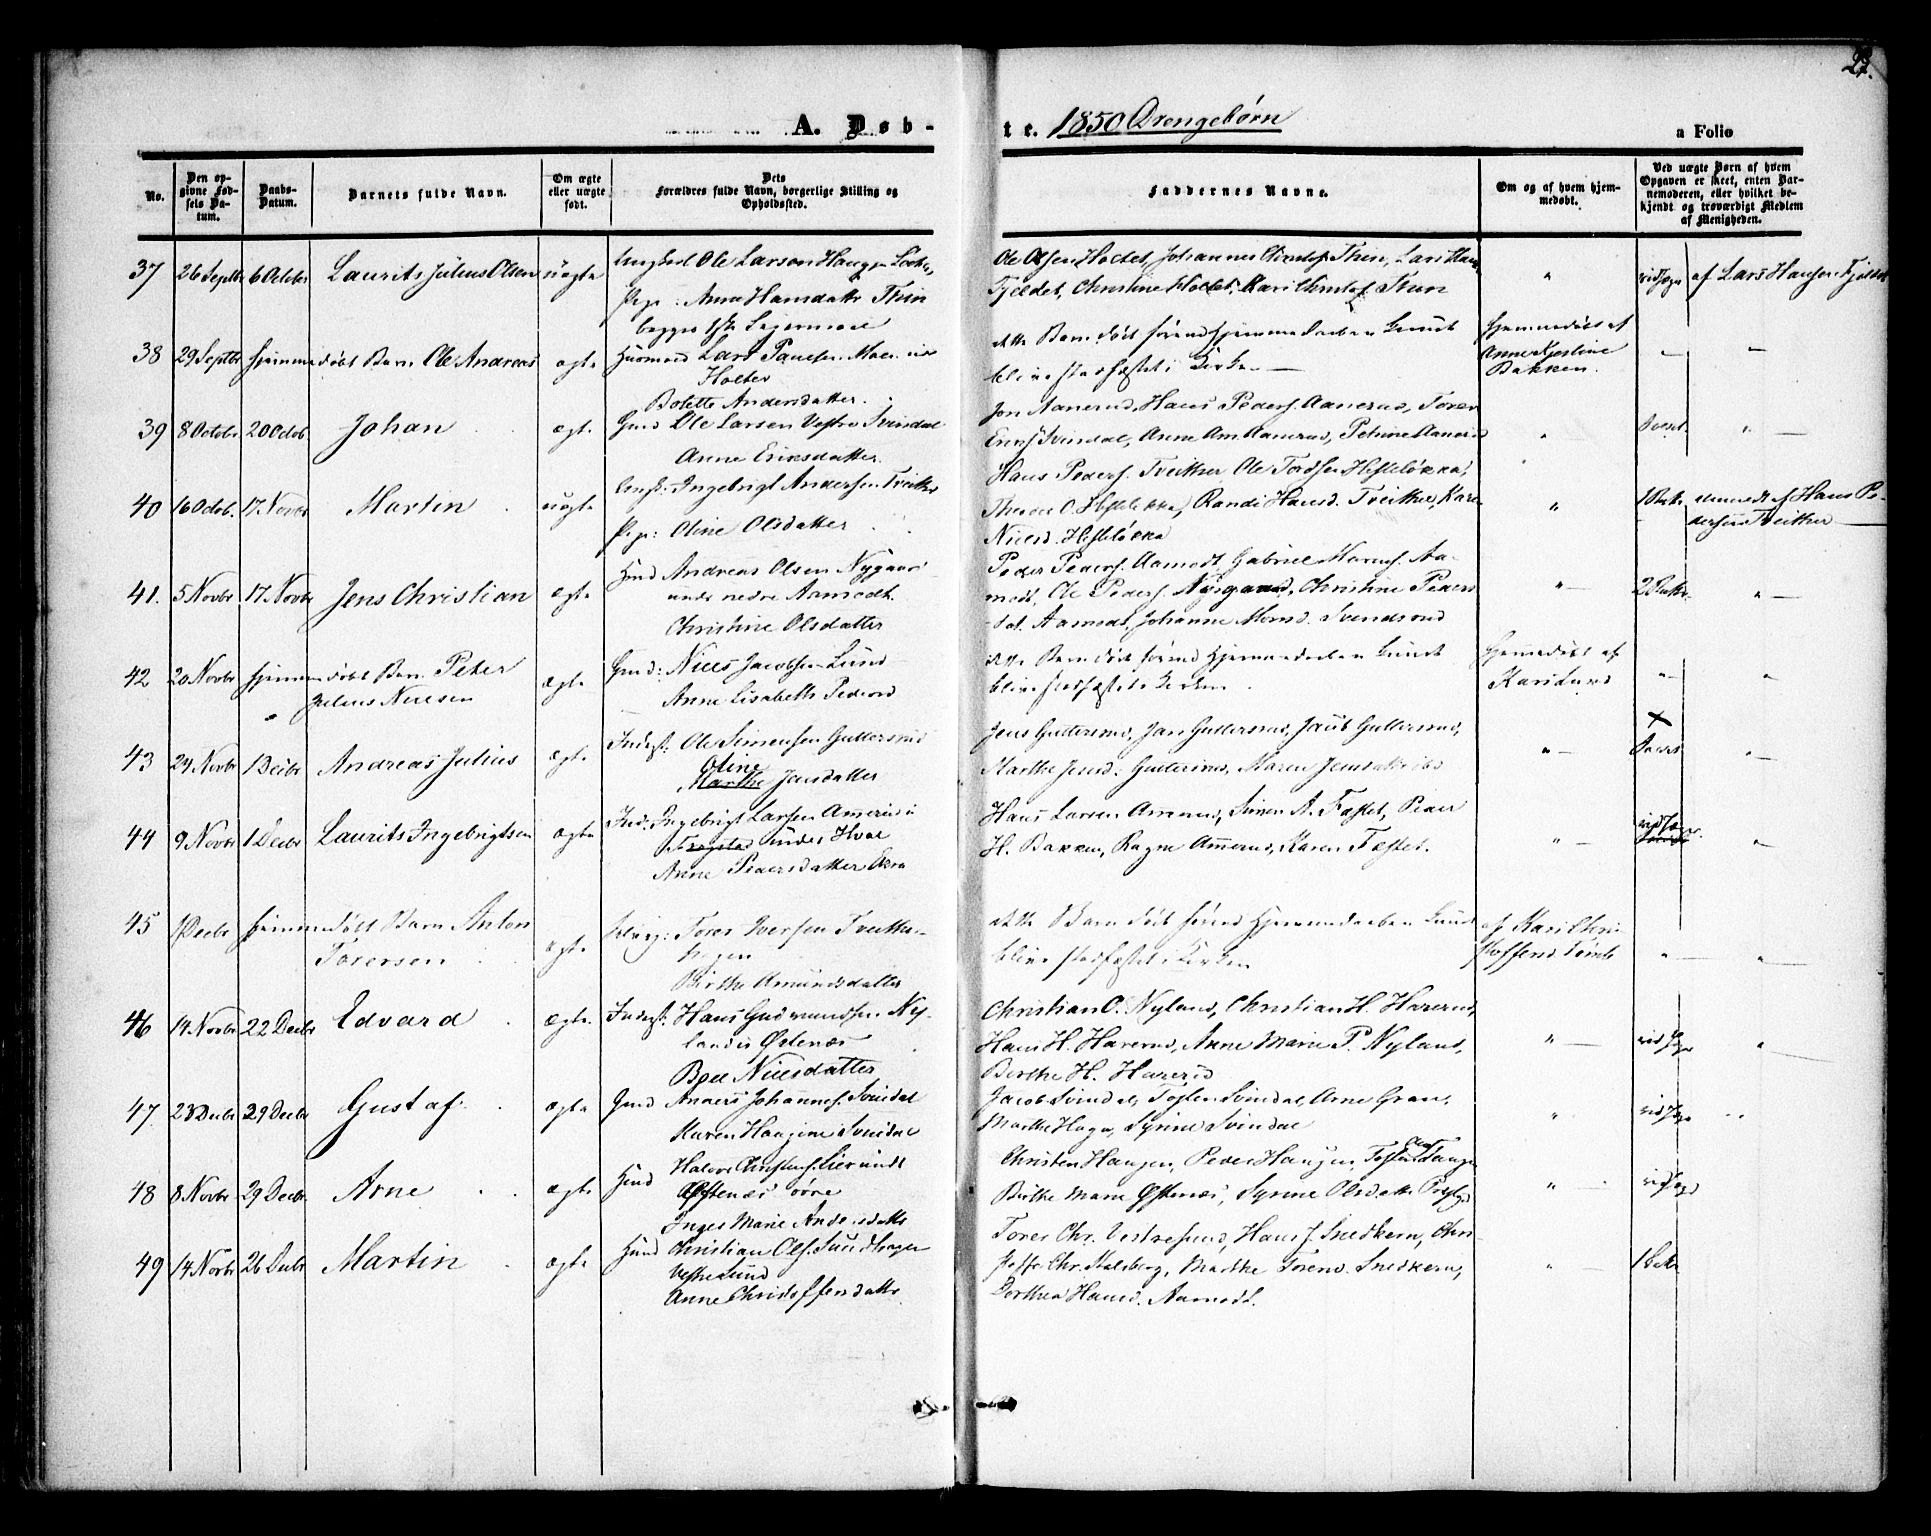 22.
A. Døb-
te. 1850 Drengebørn
a Folio
No.
Den op-
givne Fød-
sels Da-
tum.
Daabs-
Datum.
Barnets fulde Navn.
Om ægte
eller uægte
født.
Dets
Forældres fulde Navn, borgerlige Stilling og
Opholdssted.
Faddernes Navne.
Om og af hvem hjem-
medøbt.
Ved uægte Børn af hvem
Opgaven er skeet, enten Bar-
nemoderen, eller hvilket be-
kjendt og troværdigt Medlem
af Menigheden.
37 26 Septbr 6 Octobr Laurits Julius Olsen uægte
Ungkarl Ole Larsen Haugen
Pige: Anne Hansdatter Thien
Ole Olsen Holtet, Johannes Christofs. Thien, Lars Hans.
Fjeldet, Christine Holtet, Kari Christof. Thien
" af Lars Hansen Fjeldet
38 29 Septbr hjemmedøbt Barn Ole Andreas ægte
Husmand Lars Paulsen Moen
Holter
Bolette Andersdatter.
dette Barn død førend Hjemmedaaben kunde
blive stadfæstet i Kirken
Hjemmedøbt af
Anne Kjerstine
Bakken.
39 8 Octobr 20 Octob. Johan ægte
Gmd Ole Larsen Vestre Svindal
Anne Eriksdatter.
Jon Aanerud, Hans Peders. Aanerud, Torer
Eriks. Svindal, Anne Am. Aanerud, Petrine Aanerud
40 16 Octob. 17 Novbr Martin uægte
Ungk: Ingebrigt Andersen Tveitter
Pige: Oline Olsdatter
Hans Peders. Tveitter, Ole Tordsen Hesleløkka,
O. Hesleløkka, Randi Hansd. Tveitter, Karen
Nielsd. Hesleløkka
anmeldt af Hans Pe-
dersen Tveitter
41. 5 Novbr 17 Novbr Jens Christian ægte
Hmd Andreas Olsen Nygaard
under nedre Aamodt.
Christine Olsdatter
Peder Peders. Aamodt, Gabriel Aa-
modt, Ole Peders. Nygaard, Christine Peders-
dat. Aamodt, Johanne Monsd. Svendsrud
42 20 Novbr hjemmedøbt Barn Peter
Julius Nielsen ægte
Gmd: Niels Jacobsen Lund
Anne Lisabeth Pedersd
dette Barn død førend Hjemmedaaben kunde
blive stadfæstet i Kirken.
Hjemmedøbt af
Kari Lund
43 24 Novbr 1 Decbr Andreas Julius ægte
Inderst: Ole Simensen Guttersrud
Oline
Marthe Jensdatter
Jens Guttersrud, Jan Guttersrud, Jacob Guttersrud,
Marthe Jensd. Guttersrud, Maren Jensdatter
44 9 Novbr 1 Decbr Laurits Ingebrigtsen ægte
Ind. Ingebrigt Larsen Amerud i
Frogstad under Hval
Anne Pedersdatter
Hans Larsen Amerud, Simen A. Fæstet, Peder
H. Bakken, Ragne Amerud, Karen Fæstet.
45 1 Decbr hjemmedøbt Barn Anton
Torersen ægte
Torer Iversen Tveitter-
hagen
Birthe Amundsdatter
dette Barn død førend Hjemmedaaben kunde
blive stadfæstet i Kirken
af Kari Chri-
stoffersd
46 14 Novbr 22 Decbr Edvard ægte
Inderst: Hans Gudmundsen Ny-
land i Østenæs
Boel Nielsdatter
Christian O. Nyland, Christian H. Harerud,
Hans H. Harerud, Anne Marie P. Nyland,
Berthe H. Harerud
47 23 Decbr 29 Decbr Gustaf ægte
Gmd Anders Johannes. Svindal
Karen Haagine Svindal
Jacob Svindal, Tosten Svindal, Arne Gran,
Marthe Haga, Synne Svindal
48 8 Novbr 29 Decbr Arne ægte
Hmd Halvor Christens. Lier under
Østenæs øvre
Inger Marie Andersdatter
Christen Haugen, Peder Haugen, Tosten Tangen
Birthe Marie Østenæs, Synne Olsdatter
49 14 Novbr 26 Decbr Martin ægte
Hmd Christian Ols. Sundhagen
Vestresund
Anne Christoffersdatter
Torer Chr. Vestresund, Hans J. Snedkern, Chri-
stoffer Chr. Malsberg, Marthe Torersd. Snedkern,
Dorthea Hansd. Aamodt.